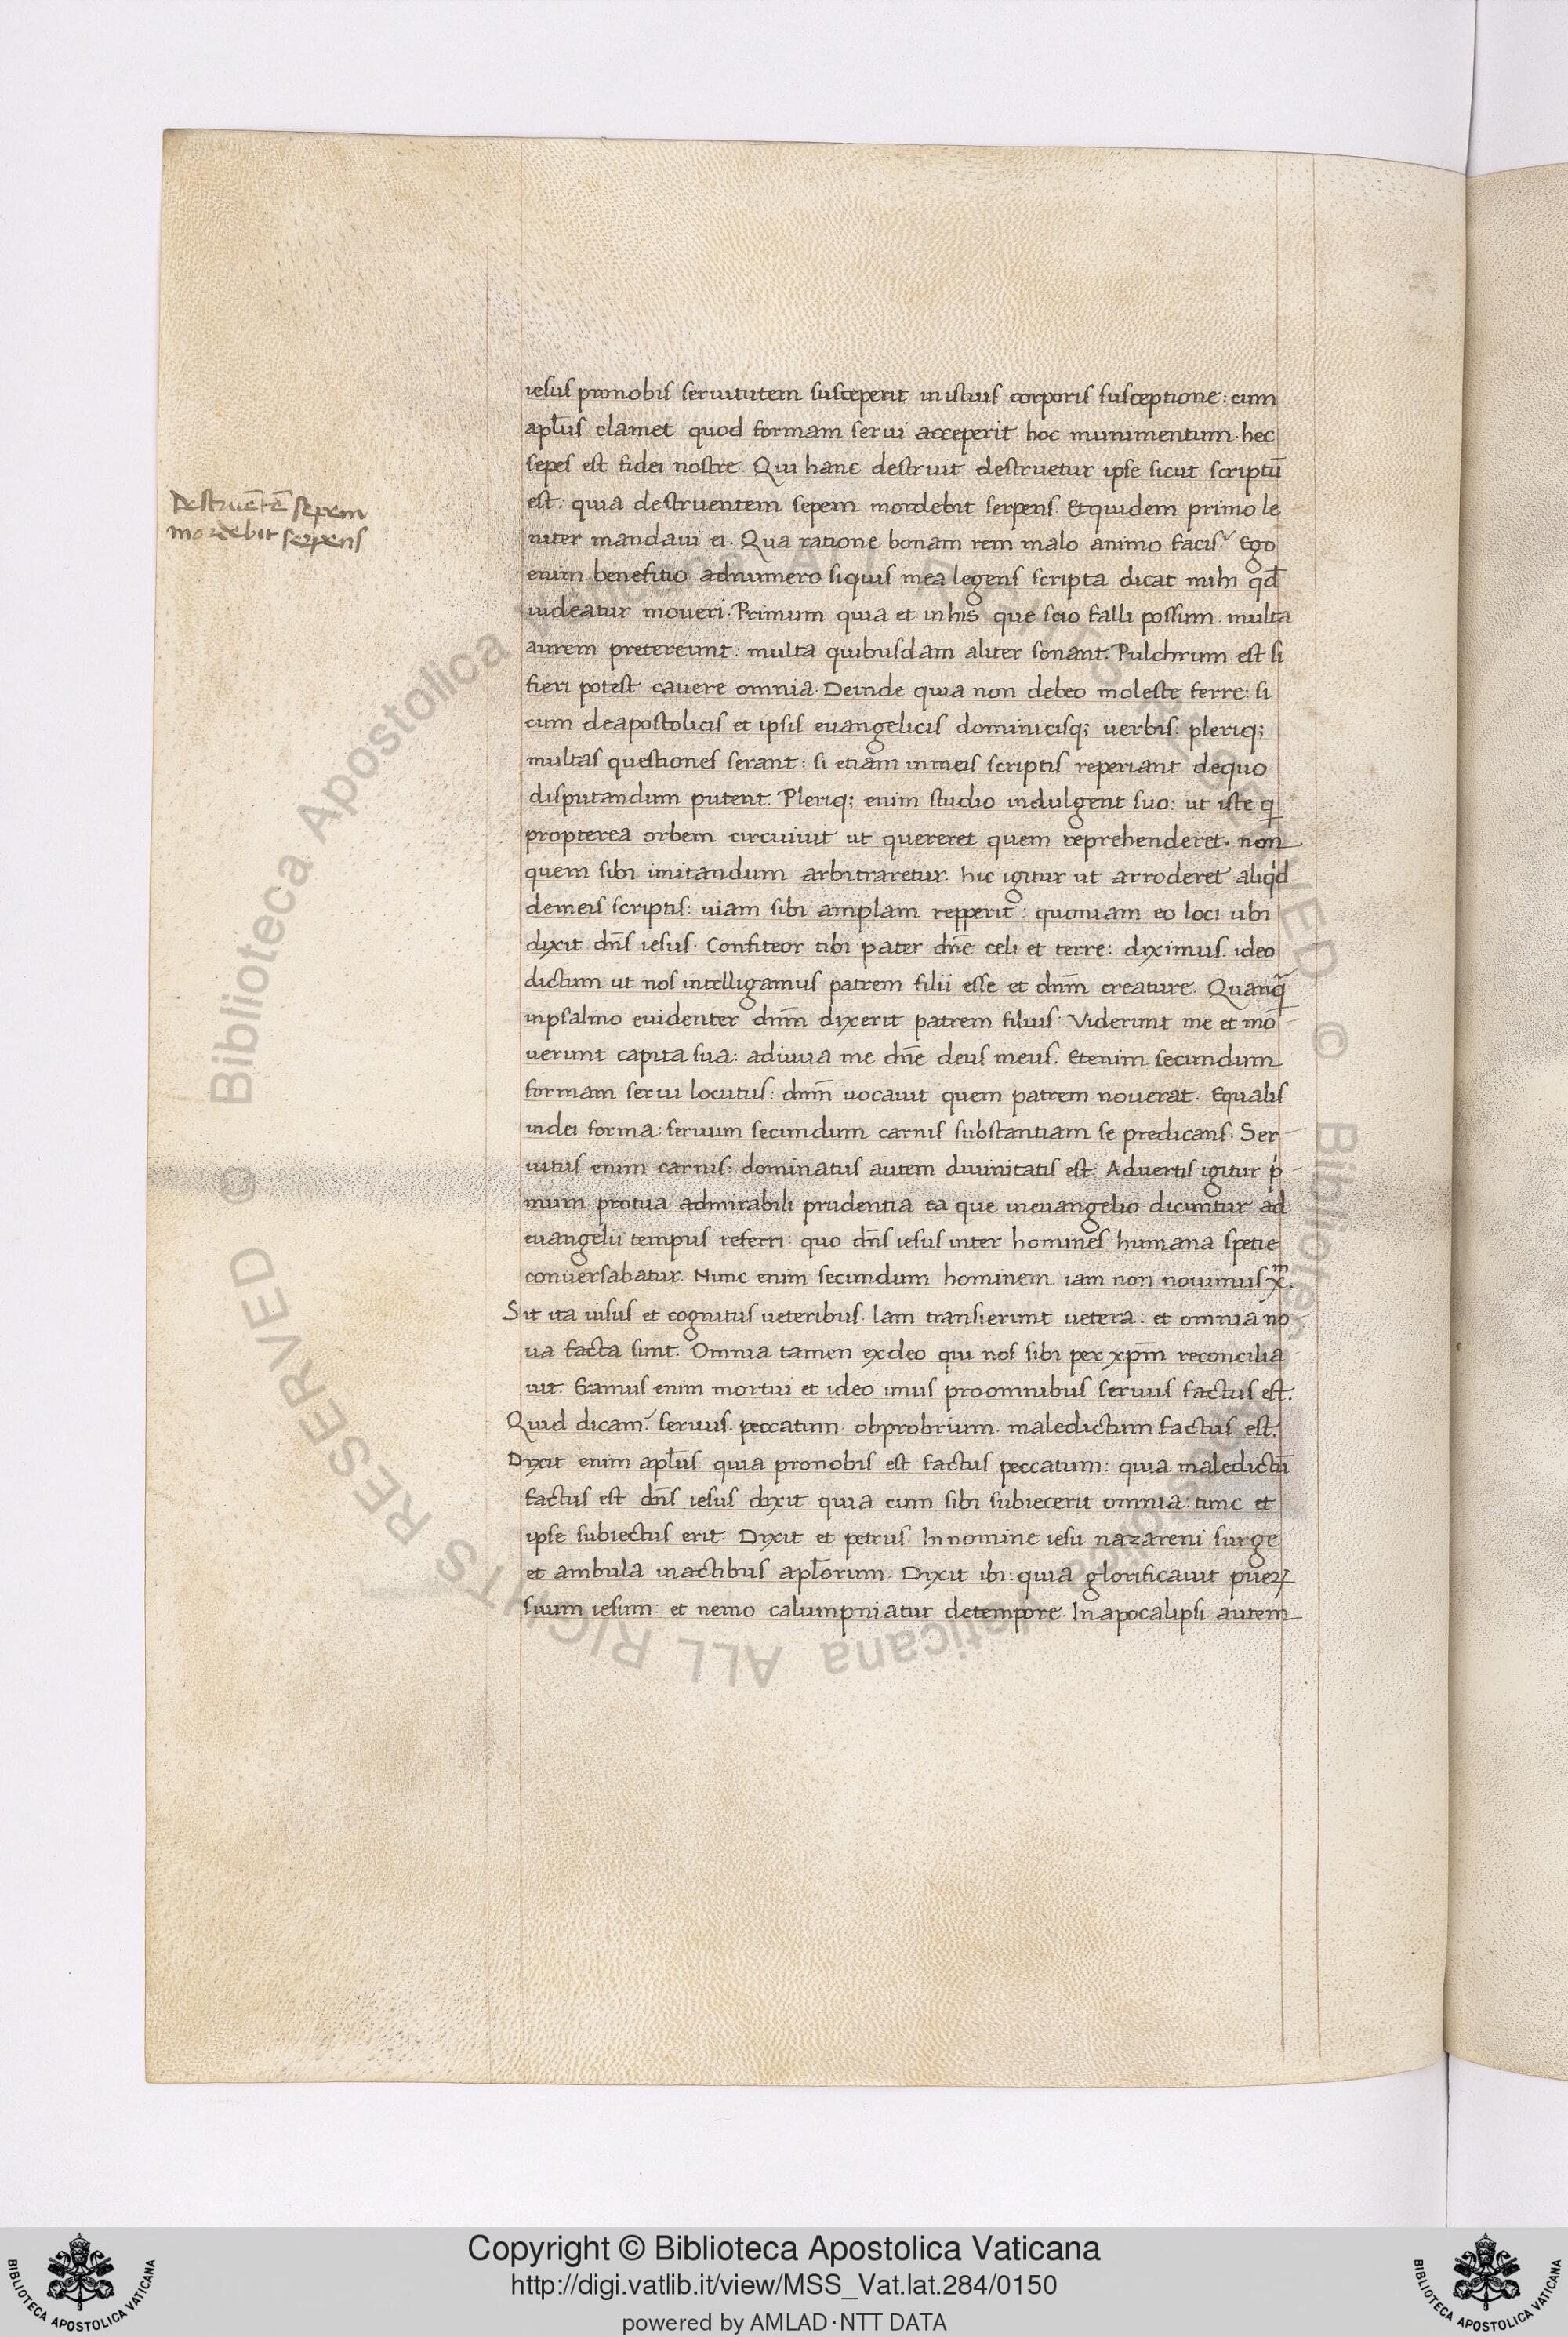 Destruētē sepem
mordebit serpens
iesus pronobis seruitutem susceperit inistius corporis susceptione: cum
apl̄us clamet quod formam serui acceperit hoc munimentum. hec
sepes est fidei nostre. Qui hanc destruit destruetur ipse sicut scriptū
est: quia destruentem sepem mordebit serpens. Etquidem primo le
niter mandaui ei. Qua ratione bonam rem malo animo facis? Ego
enim benefitio adnumero siquis mea legens scripta dicat mihi qd̄
uideatur moueri. Primum quia et inhis que scio falli possum. multa
aurem pretereunt: multa quibusdam aliter sonant. Pulchrum est si
fieri potest cauere omnia. Deinde quia non debeo moleste ferre: si
cum deapostolicis et ipsis euangelicis dominicisq; uerbis. pleriq;
multas questiones serant: si etiam inmeis scriptis reperiant dequo
disputandum putent. Pleriq; enim studio indulgent suo: ut iste q
propterea orbem circuiuit ut quereret quem reprehenderet. non
quem sibi imitandum arbitraretur. hic igitur ut arroderet aliqd
demeis scriptis: uiam sibi amplam repperit: quoniam eo loci ubi
dixit dn̄s iesus. Confiteor tibi pater dn̄e celi et terre: diximus. ideo
dictum ut nos intelligamus patrem filii esse et dnm̄ creature. Quanq̄
inpsalmo euidenter dnm̄ dixerit patrem filius. Viderunt me et mo
uerunt capita sua: adiuua me dn̄e deus meus. Etenim secundum
formam serui locutus: dnm̄ uocauit quem patrem nouerat. Equalis
indei forma: seruum secundum carnis substantiam se predicans. Ser
uitus enim carnis: dominatus autem diuinitatis est. Aduertis igitur p
mum protua admirabili prudentia ea que ineuangelio dicuntur ad
euangelii tempus referri: quo dn̄s iesus inter homines humana spetie
conuersabatur. Nunc enim secundum hominem iam non nouimus xm.
Sit ita uisus et cognitus ueteribus. Iam transierunt uetera: et omnia no
ua facta sunt. Omnia tamen exdeo qui nos sibi per xpm̄ reconcilia
uit. Eramus enim mortui et ideo imus proomnibus seruus factus est.
Quid dicam? seruus. peccatum. obprobrium. maledictum factus est.
Dixit enim apl̄us quia pronobis est factus peccatum: quia maledictū
factus est dn̄s iesus dixit quia cum sibi subiecerit omnia: tunc et
ipse subiectus erit. Dixit et petrus. Innomine iesu nazareni surge
et ambula inactibus apl̄orum. Dixit ibi: quia glorificauit puerꝫ
suum iesum: et nemo calumpniatur detempore. Inapocalipsi autem
Copyright © Biblioteca Apostolica Vaticana
http://digi.vatlib.it/view/MSS_Vat.lat.284/0150
powered by AMLAD·NTT DATA